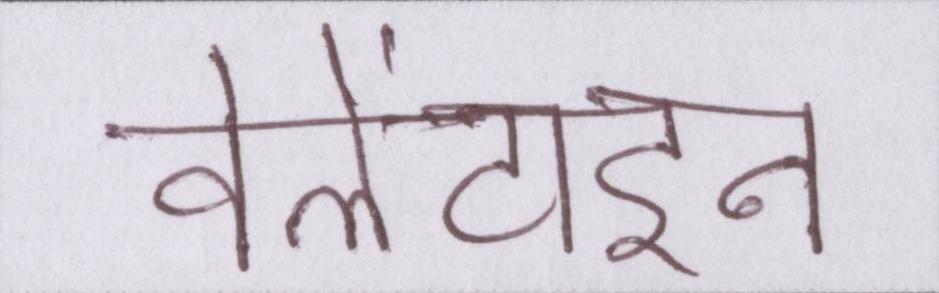 वेलेंटाइन